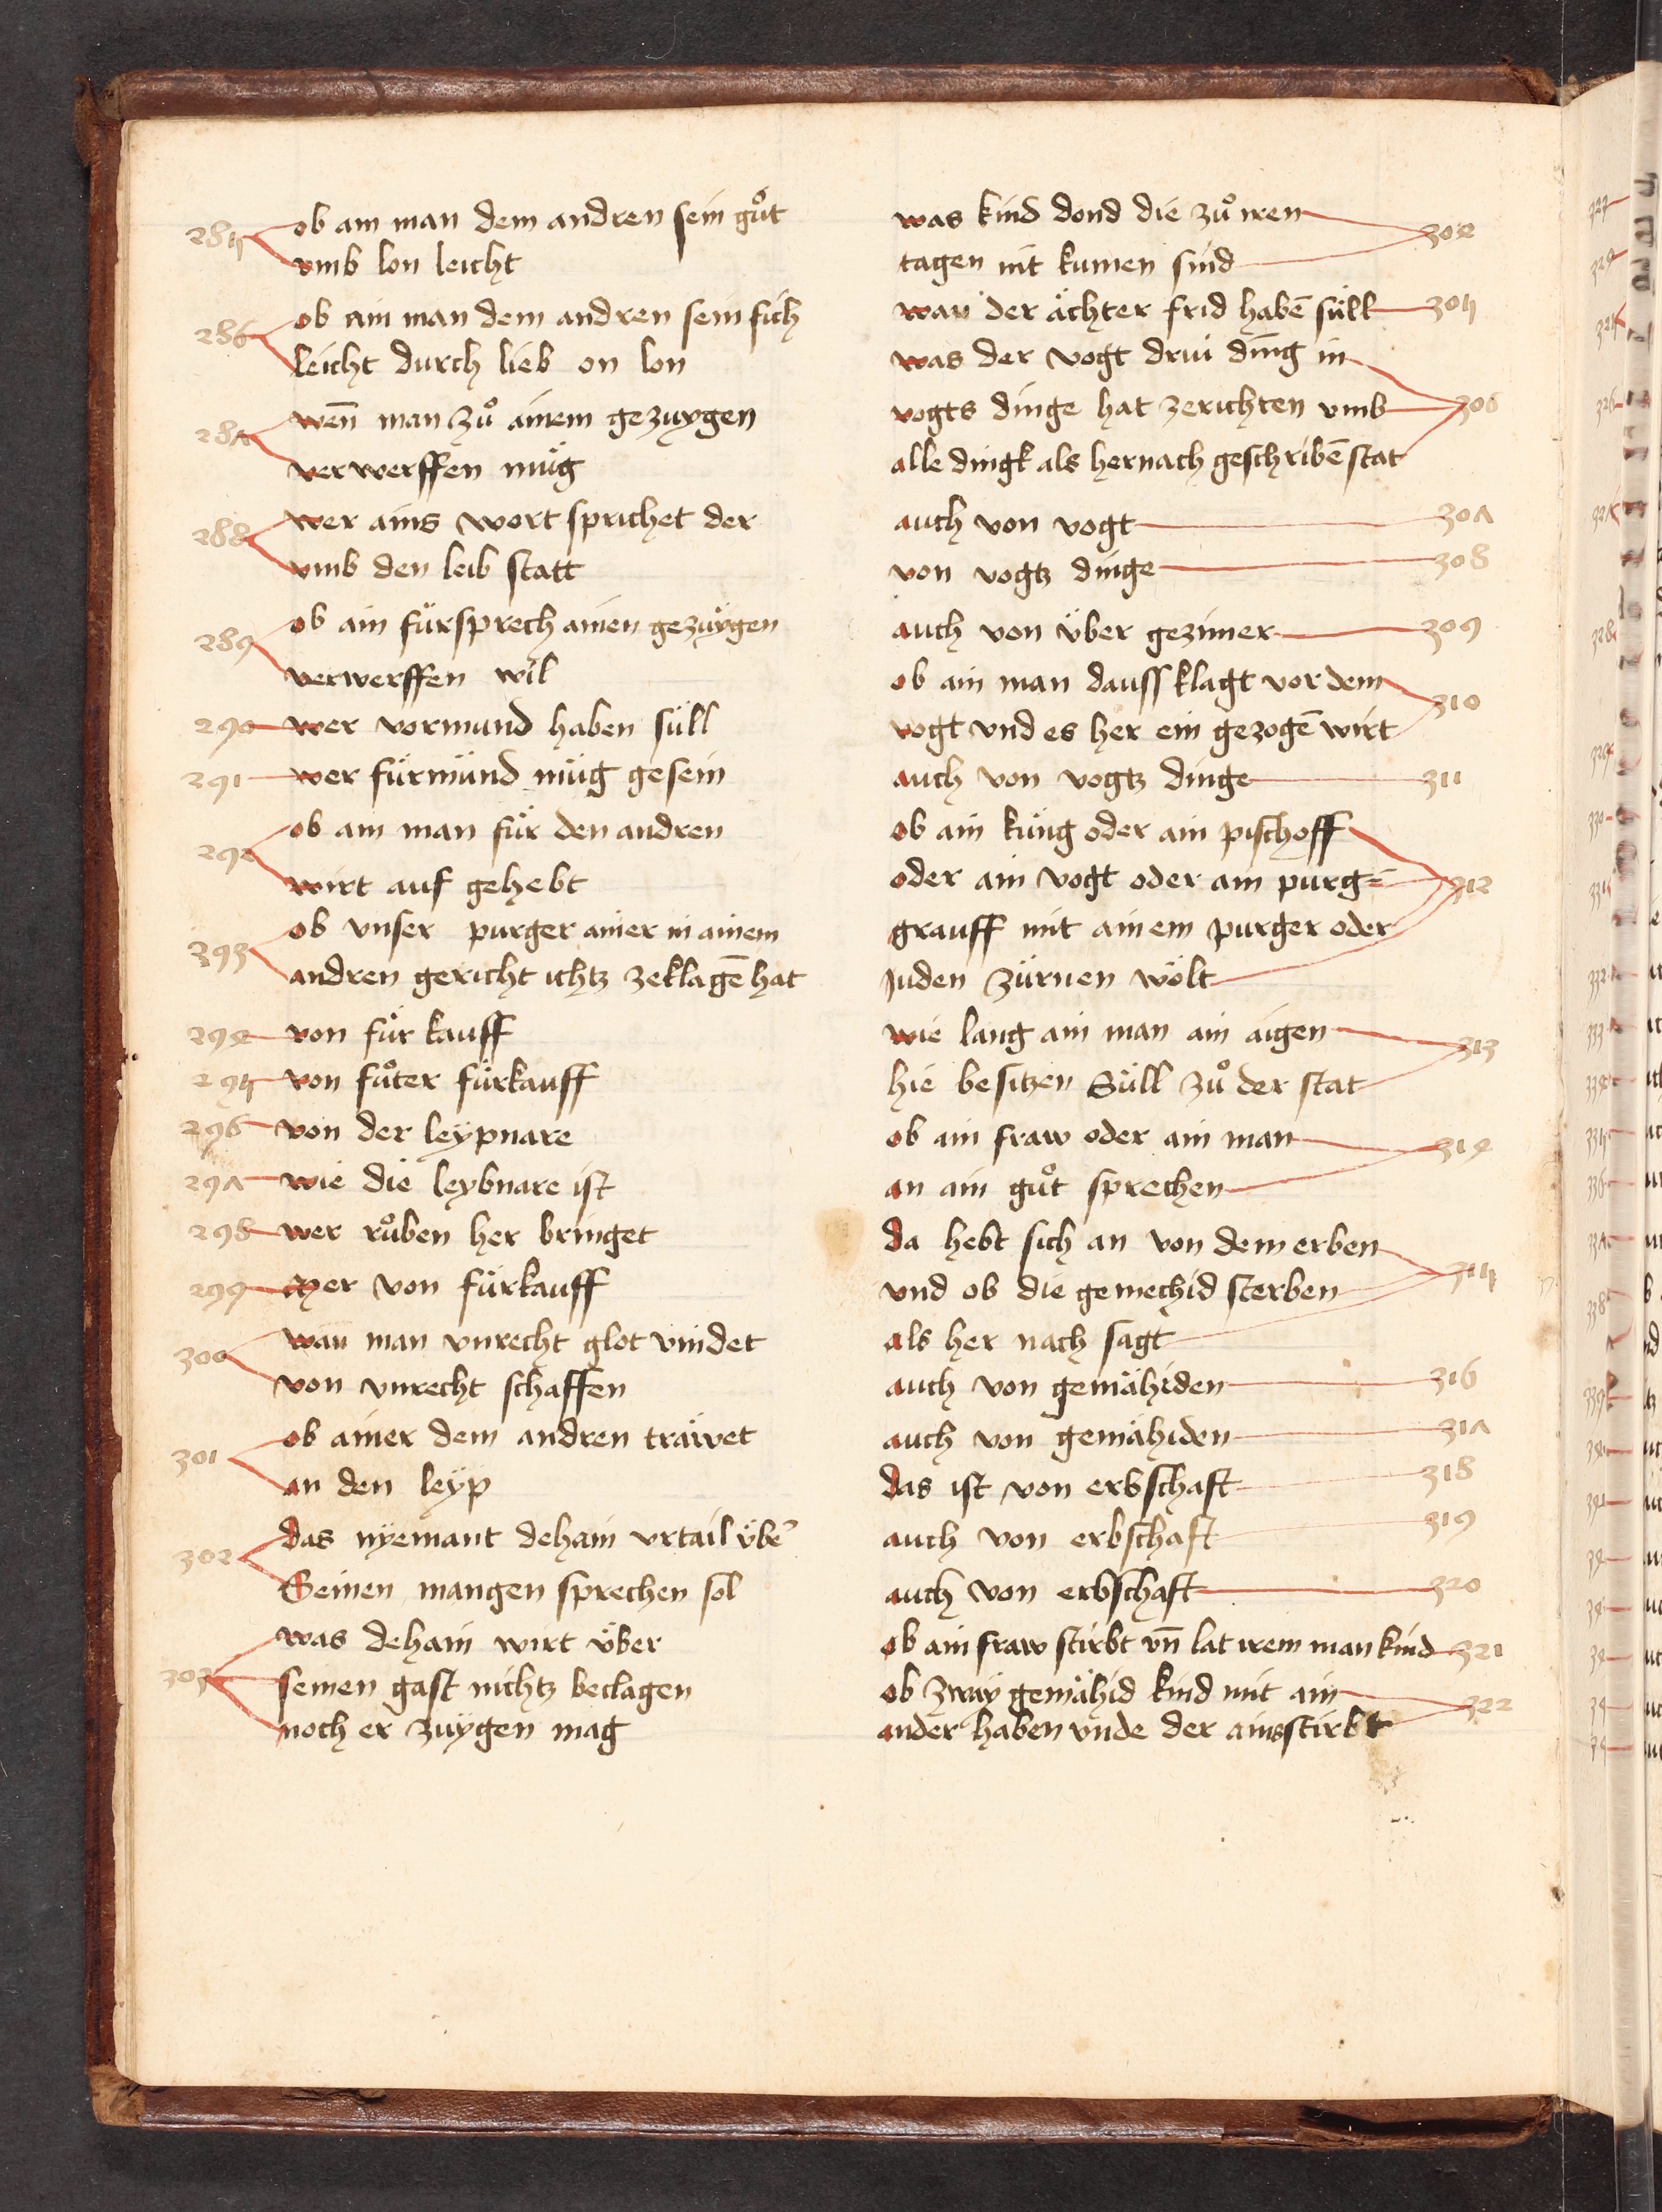 285 ob ain man dem andren sein gůt
vmb lon leicht
286 ob ain man dem andren sein fich
leicht durch lieb on lon
287 wen̄ man zů ainem gezuygen
verwerffen müg
288 wer ains wort sprichet der
vmb den leib statt
289 ob ain fürsprech ainen gezuÿgen
verwerffen wil
290 wer vormund haben süll
291 wer fürmünd müg gesein
292 ob ain man für den andren
wirt auf gehebt
293 ob vnser purger ainer in ainem
andren gericht ichtz zeklagē hat
294 von für kauff
295 von fůter fürkauff
296 von der leÿpnare
297 wie die leybnare ist
298 wer růben her bringet
299 Mer von fürkauff
300 wan man vnrecht glot vindet
von vnrecht schaffen
301 ob ainer dem andren träwet
an den leÿp
302 das nÿemant dehain vrtail übē
Seinen mangen sprechen sol
303 was dehain wirt über
seinen gast nichtz beclagen
noch er zuÿgen mag
was kind dond die zů iren 304
tagen nit kumen sind
wan der ächter frid habē süll 305
was der vogt drui ding in
vogts dinge hat zerichten vmb 306
alle dingk als hernach geschribē stat
auch von vogt 307
von vogtz dinge 308
auch von über gezimer 309
ob ain man dauss klagt vor dem 310
vogt vnd es her ein gezogē wirt
auch von vogtz dinge 311
ob ain küng oder ain pischoff
oder ain vogt oder ain purg= 312
grauff mit ainem purger oder
Juden zürnen wölt
wie lang ain man ain aigen 313
hie besitzen Süll zů der stat
ob ain fraw oder ain man 314
an ain gůt sprechen
da hebt sich an von dem erben
vnd ob die gemechid sterben 315
als her nach sagt
auch von gemähiden 316
auch von gemähiden 317
das ist von erbschaft 318
auch von erbschaft 319
auch von erbschaft 320
ob ain fraw stirbt vn̄ lat irem man kind 321
ob zwaÿ gemähid kind mit ain 322
ander haben vnde der ains stirbt